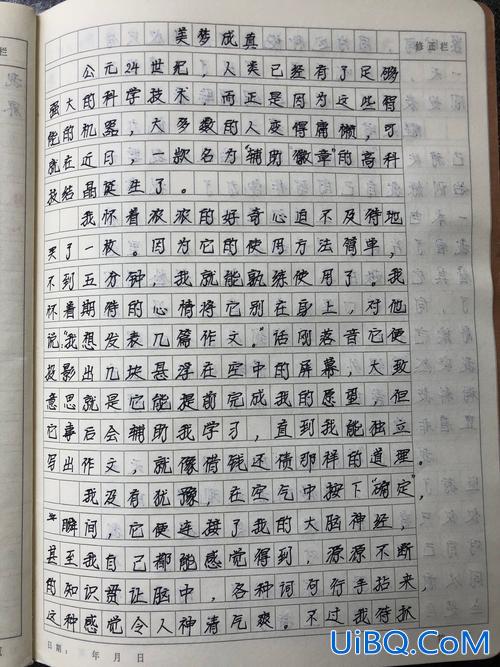 美梦成真
修正栏
公元24世纪，人类已经有了足够
强大的科学技术，而正是因为这些智
能的机器，大多数的人变得庸懒，可
就在近日，一款名为“辅助徽章”的高科
技结晶诞生了。
我怀着浓浓的好奇心迫不及待地
买了一枚。因为它的使用方法简单，
不到五分钟，我就能熟练使用了。我
怀着期待的心情将它别在身上，对他
说“我想发表几篇作文。”话刚落音它便
投影出几块悬浮在空中的屏幕，大致
意思就是它能提前完成我的愿望，但
它事后会辅助我学习，直到我能独立
写出作文，就像借钱还债那样的道理。
我没有犹豫，在空气中按下“确定”，
瞬间，它便连接了我的大脑神经，
甚至我自己都能感觉得到，源源不断
的知识晋让脑中，各种词句行手拈来，
这种感觉令人神清气爽。不过我待趴
日期： 年 月 日
UiBQ.CoM